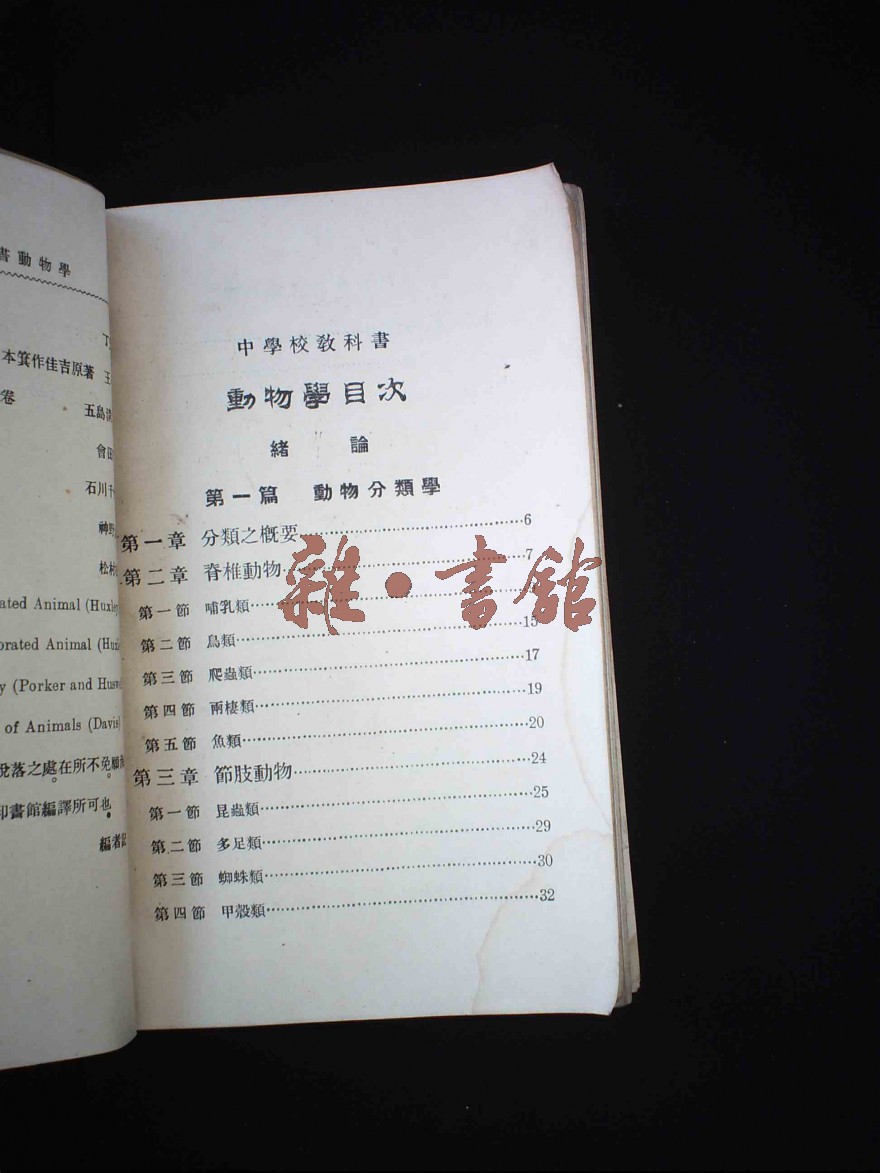 書動物學
本箕作佳吉原著 王
卷
五島清
會田
石川千
神野
松村
ated Animal (Huxley
orated Animal (Hux
y (Porker and Hus
of Animals (Davis)
脫落之處在所不免。願
印書館編譯所可也。
編者記
中學校敎科書
動物學目次
緒 論
第一篇 動物分類學
第一章 分類之概要 6
第二章 脊椎動物 7
第一節 哺乳類
第二節 鳥類 15
第三節 爬蟲類 17
第四節 兩棲類 19
第五節 魚類 20
第三章 節肢動物 24
第一節 昆蟲類 25
第二節 多足類 29
第三節 蜘蛛類 30
第四節 甲殼類 32
雜·書館